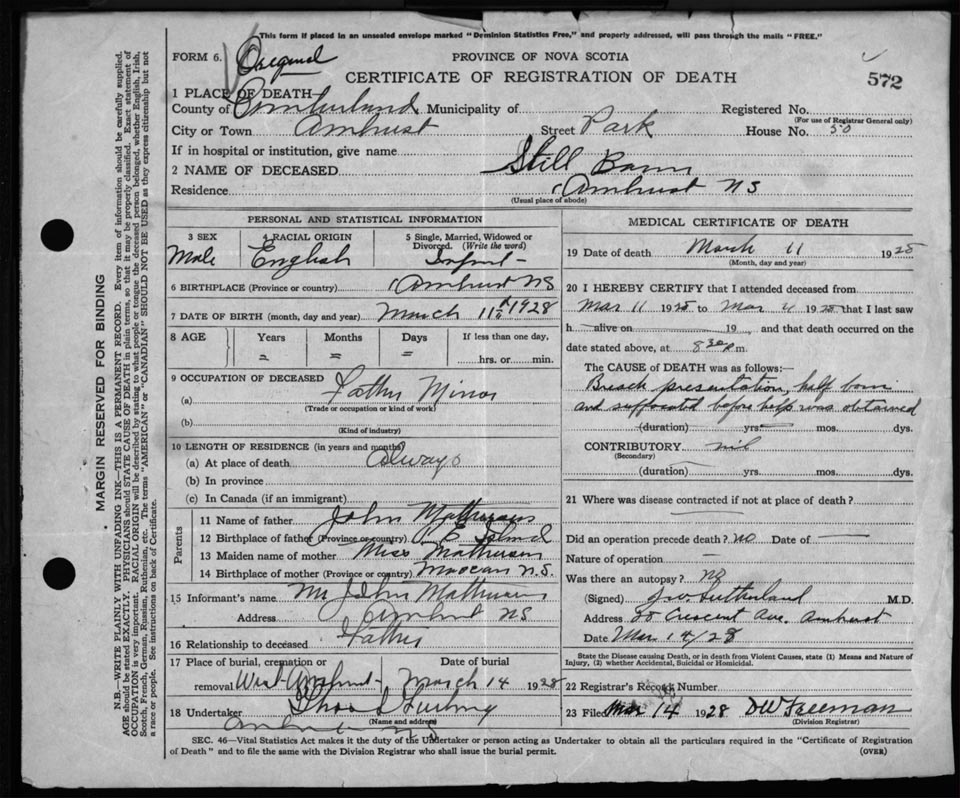 This form if placed in an unsealed envelope marked "Dominion Statistics Free," and properly addressed, will pass through the mails "FREE."
FORM 6. Original PROVINCE OF NOVA SCOTIA
CERTIFICATE OF REGISTRATION OF DEATH 572
1 PLACE OF DEATH—
County of Cumberland Municipality of Registered No.
(For use of Registrar General only)
City or Town Amherst Street Park House No. 50
If in hospital or institution, give name
2 NAME OF DECEASED Still Born
Residence Amherst NS
(Usual place of abode)
PERSONAL AND STATISTICAL INFORMATION
3 SEX 4 RACIAL ORIGIN 5 Single, Married, Widowed or Divorced. (Write the word)
Male English Infant
6 BIRTHPLACE (Province or country) Amherst NS
7 DATE OF BIRTH (month, day and year) March 11th 1928
8 AGE Years Months Days If less than one day,
hrs. or min.
9 OCCUPATION OF DECEASED
(a) Father Minor
(Trade or occupation or kind of work)
(b)
(Kind of industry)
10 LENGTH OF RESIDENCE (in years and months)
(a) At place of death Always
(b) In province
(c) In Canada (if an immigrant)
Parents
11 Name of father John
12 Birthplace of father (Province or country) P. E. Island
13 Maiden name of mother Miss Matheson
14 Birthplace of mother (Province or country) Maccan N.S.
15 Informant's name Mr John
Address Amherst NS
16 Relationship to deceased Father
17 Place of burial, cremation or Date of burial
removal West Amherst March 14 1928
18 Undertaker
(Name and address)
MEDICAL CERTIFICATE OF DEATH
19 Date of death March 11 1928
(Month, day and year)
20 I HEREBY CERTIFY that I attended deceased from
Mar 11 1928 to Mar 11 1928 that I last saw
h alive on 19 , and that death occurred on
date stated above, at 8 30 P.m.
The CAUSE of DEATH was as follows:—
Breach presentation, half born
and suffocated before help was obtained
(duration) yrs. mos. dys.
CONTRIBUTORY nil
(Secondary)
(duration) yrs. mos. dys.
21 Where was disease contracted if not at place of death?
Did an operation precede death? no Date of —
Nature of operation —
Was there an autopsy? no
(Signed) J.W. Sutherland M.D.
Address 20 Crescent Ave. Amherst
Date Mar. 14/28
State the Disease causing Death, or in death from Violent Causes, state (1) Means and Nature of
Injury, (2) whether Accidental, Suicidal or Homicidal.
22 Registrar's Record Number
23 Filed Mar 14 1928 DW Freeman
SEC. 46—Vital Statistics Act makes it the duty of the Undertaker or person acting as Undertaker to obtain all the particulars required in the "Certificate of Registration
of Death" and to file the same with the Division Registrar who shall issue the burial permit. (OVER)
MARGIN RESERVED FOR BINDING
N.B.—WRITE PLAINLY WITH UNFADING INK—THIS IS A PERMANENT RECORD. Every item of information should be carefully supplied.
AGE should be stated EXACTLY. PHYSICIANS should STATE CAUSE OF DEATH in plain terms, so that it may be properly classified. Exact statement of
OCCUPATION is very important. RACIAL ORIGIN will be described by stating to what people or tongue the deceased person belonged, whether English, Irish,
Scotch, French, German, Russian, Ruthenian, etc. The terms "AMERICAN" or "CANADIAN" SHOULD NOT BE USED as they express citizenship but not
a race or people. See instructions on back of Certificate.